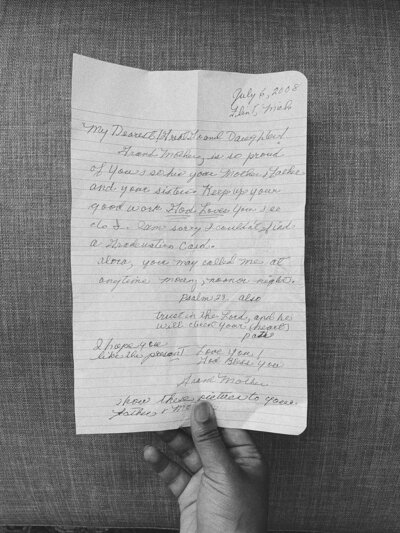 July 6, 2008
Flint, Mich
My Dearest Grand Daughter!
Grand Mother, is so proud
of you; so his your Mother, Father
and your sisters. Keep up your
good work God Loves you; so
do I. I am sorry I couldn't find
a Graduation Card.
you may called me at
anytime morning, noon or night.
Psalm 23 also
trust in the Lord, and he
will direct your (heart)
path
I hope you
like the present Love You!
God Bless You
Grand Mother
show these picture to your
Father &